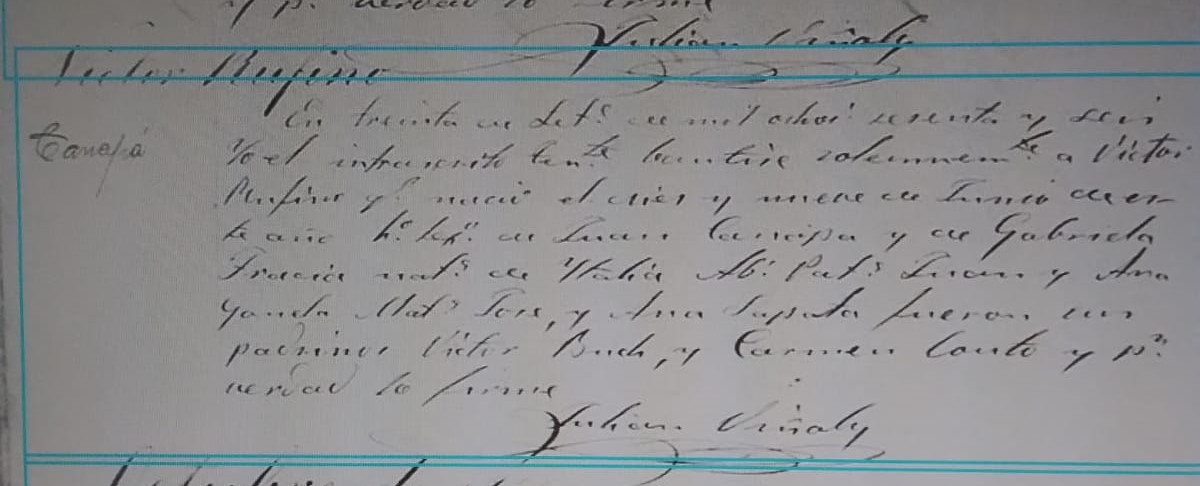 y p.r verdad lo firme
Julian Viñaly
Victor Rufino
Canapá
En treinta de Set.e de mil ochoc.s sesenta y seis
Yo el infrascrito ten.te bautise solemnem.te a Victor
Rufino q.e nació el dies y nueve de Junio de es-
te año h.o leg.o de Juan Canapa y de Gabriela
nat.s de Ytalia Ab.s Pat.s Juan y Ana
Mat.s Jose, y Ana fueron sus
padrinos Victor Buch, y Carmen Couto y p.r
verdad lo firme
Julian Viñaly